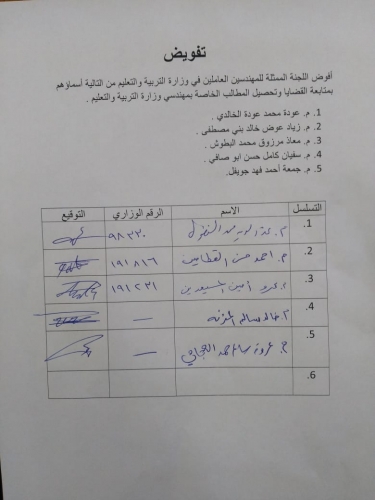 تفويض
أفوض اللجنة الممثلة للمهندسين العاملين في وزارة التربية والتعليم من التالية أسماؤهم
بمتابعة القضايا وتحصيل المطالب الخاصة بمهندسي وزارة التربية والتعليم .
1. م. عودة محمد عودة الخالدي .
2. م. زياد عوض خالد بني مصطفى .
3. م. معاذ مرزوق محمد البطوش .
4. م. سفيان كامل حسن ابو صافي .
5. م. جمعة أحمد فهد جويفل.
التسلسل الاسم الرقم الوزاري التوقيع
1. م. ٩٨٣٢٠
2. م. احمد حسن القطامين ١٩١٨١٦
3. م. عمرو أمين السعيديين ١٩١٢٣١
4. م. خالد سالم —
5. م. عروة سالم حمد —
6.